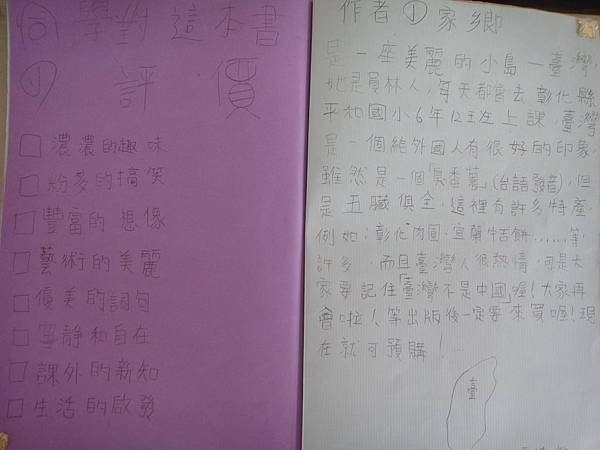 同學對這本書
的評價
□濃濃的趣味
□粉多的搞笑
□豐富的想像
□藝術的美麗
□優美的詞句
□寧靜和自在
□課外的新知
□生活的啟發
作者的家鄉
是一座美麗的小島—臺灣,
她是員林人,每天都會去彰化縣
平和國小6年12班在上課,臺灣
是一個給外國人有很好的印象,
雖然是一個「臭番薯」(台語發音),但
是五臟俱全,這裡有許多特產,
例如:彰化肉圓、宜蘭牛舌餅......等
許多,而且臺灣人很熱情,可是大
家要記住「臺灣不是中國」喔!大家再
會啦!等出版後一定要來買喔!現
在就可預購!
臺